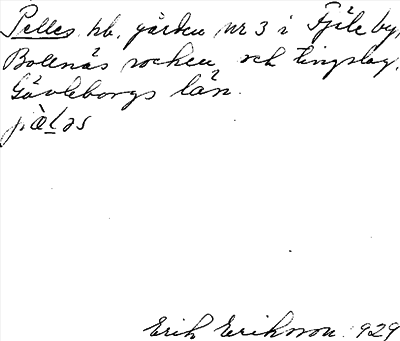 Pelles, hb. gården nr 3 i Fjäle by,
Bollnäs socken och tingslag,
Gävleborgs län.
Erik Eriksson 1929